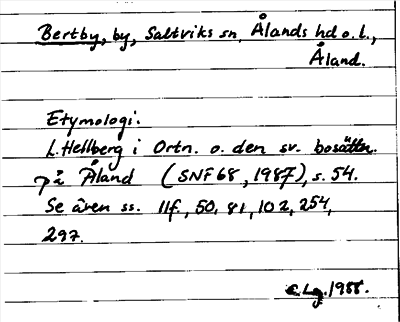 Bertby, by, Saltviks sn, Ålands hd o. l.,
Åland.
Etymologi:
L. Hellberg i Ortn. o. den sv. bosättn.
på Åland (SNF 68, 1987), s. 54.
Se även ss. 11f., 50, 81, 102, 254,
297.
C.Lg. 1988.